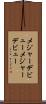 メジャーデビ
ューメジャー
デビュー